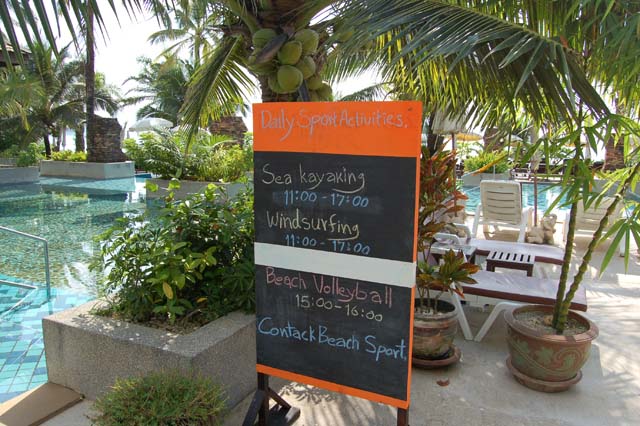 Daily Sport Activities.
Sea kayaking
11:00 - 17:00
Windsurfing
11:00 - 17:00
Beach Volleyball
15:00 - 16:00
Contack Beach Sport.